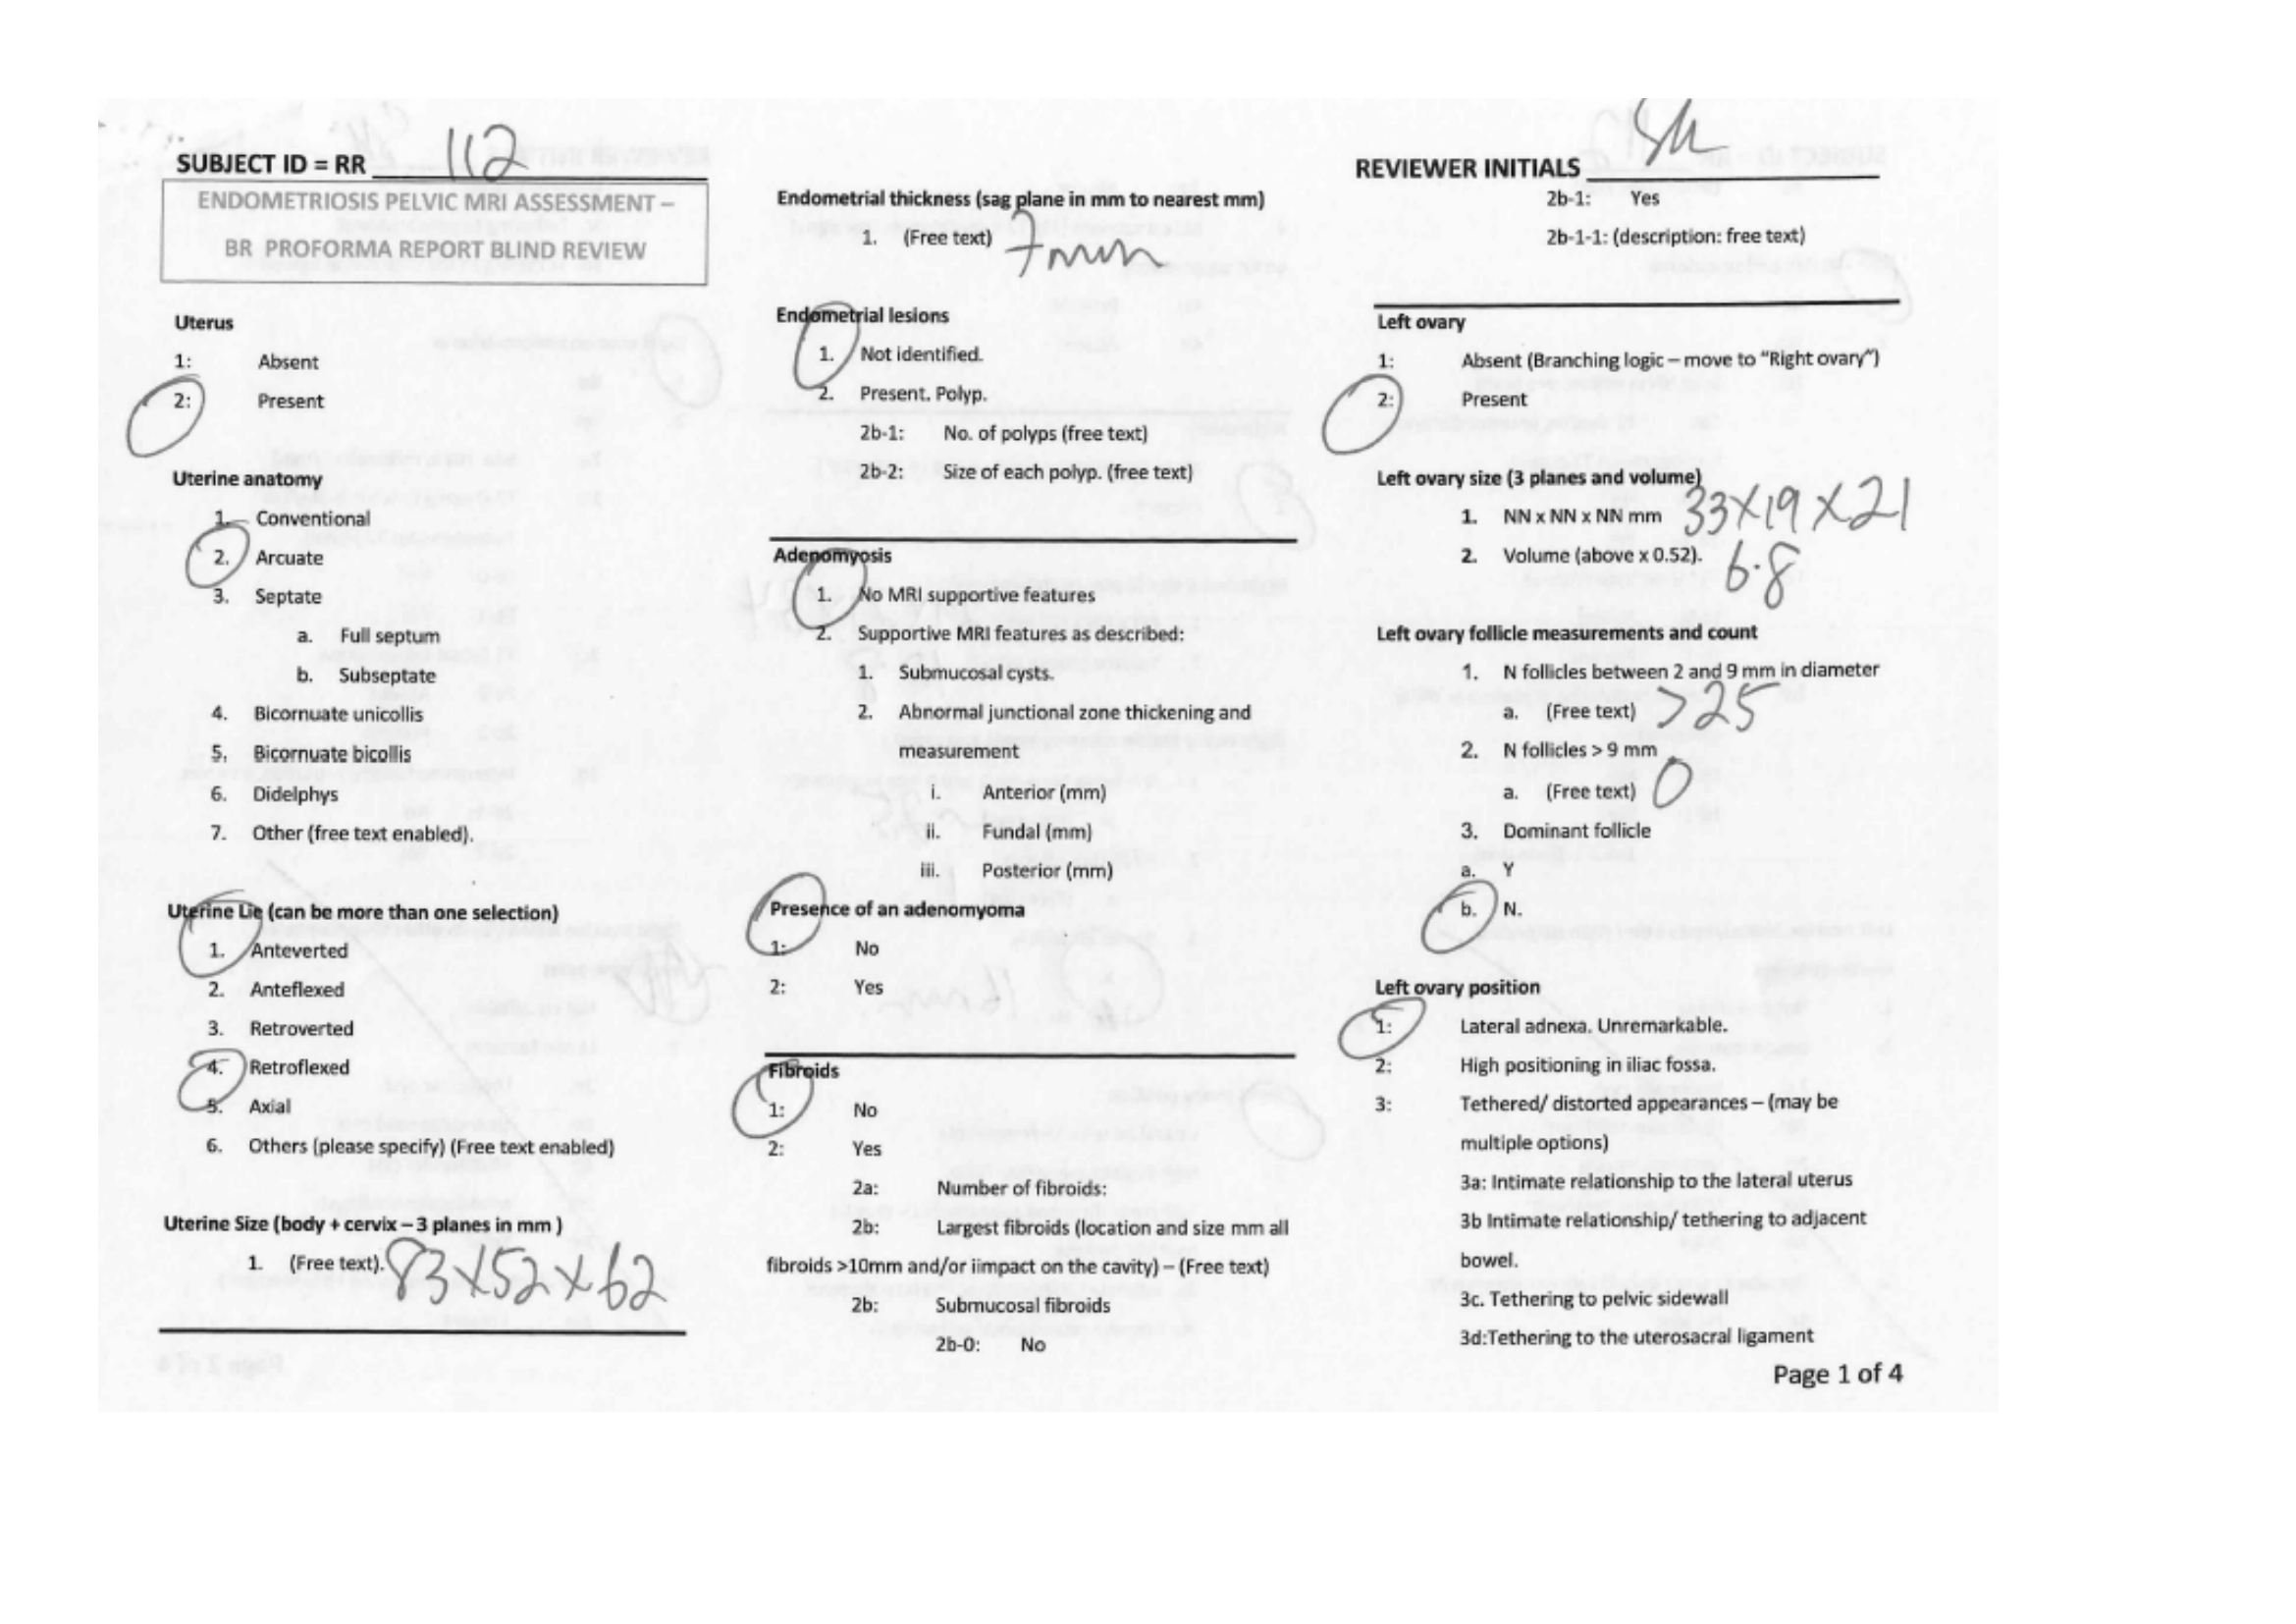 SUBJECT ID = RR 112
ENDOMETRIOSIS PELVIC MRI ASSESSMENT –
BR PROFORMA REPORT BLIND REVIEW
Uterus
1: Absent
2: Present
Uterine anatomy
1. Conventional
2. Arcuate
3. Septate
a. Full septum
b. Subseptate
4. Bicornuate unicollis
5. Bicornuate bicollis
6. Didelphys
7. Other (free text enabled).
Uterine Lie (can be more than one selection)
1. Anteverted
2. Anteflexed
3. Retroverted
4. Retroflexed
5. Axial
6. Others (please specify) (Free text enabled)
Uterine Size (body + cervix – 3 planes in mm )
1. (Free text). 83x52x62
Endometrial thickness (sag plane in mm to nearest mm)
1. (Free text) 7mm
Endometrial lesions
1. Not identified.
2. Present. Polyp.
2b-1: No. of polyps (free text)
2b-2: Size of each polyp. (free text)
Adenomyosis
1. No MRI supportive features
2. Supportive MRI features as described:
1. Submucosal cysts.
2. Abnormal junctional zone thickening and
measurement
i. Anterior (mm)
ii. Fundal (mm)
iii. Posterior (mm)
Presence of an adenomyoma
1: No
2: Yes
Fibroids
1: No
2: Yes
2a: Number of fibroids:
2b: Largest fibroids (location and size mm all
fibroids >10mm and/or iimpact on the cavity) – (Free text)
2b: Submucosal fibroids
2b-0: No
REVIEWER INITIALS
2b-1: Yes
2b-1-1: (description: free text)
Left ovary
1: Absent (Branching logic – move to "Right ovary")
2: Present
Left ovary size (3 planes and volume)
1. NN x NN x NN mm 33x19x21
2. Volume (above x 0.52). 6.8
Left ovary follicle measurements and count
1. N follicles between 2 and 9 mm in diameter
a. (Free text) >25
2. N follicles > 9 mm
a. (Free text) 0
3. Dominant follicle
a. Y
b. N.
Left ovary position
1: Lateral adnexa. Unremarkable.
2: High positioning in iliac fossa.
3: Tethered/ distorted appearances – (may be
multiple options)
3a: Intimate relationship to the lateral uterus
3b Intimate relationship/ tethering to adjacent
bowel.
3c. Tethering to pelvic sidewall
3d:Tethering to the uterosacral ligament
Page 1 of 4